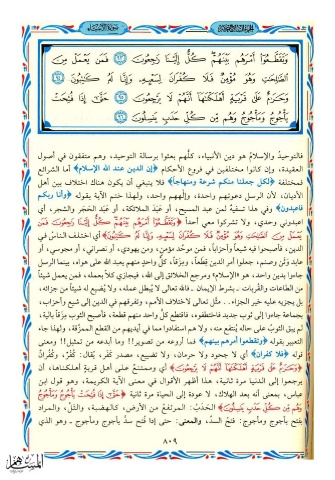 سورة الأنبياء
وَتَقَطَّعُوٓا۟ أَمْرَهُم بَيْنَهُمْ ۖ كُلٌّ إِلَيْنَا رَٰجِعُونَ ﴿٩٣﴾ فَمَن يَعْمَلْ مِنَ
ٱلصَّٰلِحَٰتِ وَهُوَ مُؤْمِنٌ فَلَا كُفْرَانَ لِسَعْيِهِۦ وَإِنَّا لَهُۥ كَٰتِبُونَ ﴿٩٤﴾
وَحَرَٰمٌ عَلَىٰ قَرْيَةٍ أَهْلَكْنَٰهَآ أَنَّهُمْ لَا يَرْجِعُونَ ﴿٩٥﴾ حَتَّىٰٓ إِذَا فُتِحَتْ
يَأْجُوجُ وَمَأْجُوجُ وَهُم مِّن كُلِّ حَدَبٍ يَنسِلُونَ ﴿٩٦﴾
فالتوحيدُ والإسلامُ هو دين الأنبياء، كلُّهم بعثوا برسالة التوحيد، وهم متفقون في أصول
العقيدة، وإن كانوا مختلفين في فروع الأحكام ﴿إن الدين عند الله الإسلام﴾ أما الشرائع
فمختلفة ﴿لكل جعلنا منكم شرعة ومنهاجاً﴾ فلا ينبغي أن يكون هناك اختلاف بين أهل
الأديان، لأن الرسل دعوتهم واحدة، وإلٰههم واحد، ولهذا ختم الآية بقوله ﴿وأنا ربكم
فاعبدون﴾ وفي هذا تسفيهٌ لمن عبد المسيح، أو عبد الملائكة، أو عَبَد الحَجَر والشجر، أي
اعبدوني وحدي، ولا تشركوا معي أحداً ﴿وَتَقَطَّعُوٓا۟ أَمْرَهُم بَيْنَهُمْ كُلٌّ إِلَيْنَا رَٰجِعُونَ فَمَن
يَعْمَلْ مِنَ ٱلصَّٰلِحَٰتِ وَهُوَ مُؤْمِنٌ فَلَا كُفْرَانَ لِسَعْيِهِۦ وَإِنَّا لَهُۥ كَٰتِبُونَ﴾ أي اختلف الناسُ في
الدين، فأصبحوا فيه شيعاً وأحزاباً، فمن موحِّد مؤمن، ومن يهودي، أو نصراني، أو مجوسي، أو
عابد وثن وصنم، جعلوا أمر الدين قِطَعاً، ومِزَقاً، كلُّ واحدٍ منهم يعبد الله على هواه، بينما الرسل
جاءوا بدين واحد، هو «الإسلام» ومرجع الخلائق إلى الله، فيجازي كلاً بعمله، فمن يعمل شيئاً
من الطاعات والقُربات ـ بشرط الإيمان ـ فالله تعالى لا يُبطل عمله، ولا يُضيع له شيئاً من جزائه،
بل يجزيه عليه خير الجزاء.. مثَّل تعالى لاختلاف الأمم، وتفرقهم في الدين إلى شيعٍ وأحزاب،
بجماعة جاءوا إلى ثوب جديد فاختطفوه، فاقتطع كلُّ واحد منهم قطعة، فأصبح الثوب مِزَقاً بالية،
لم يبق الثوبُ على حاله يُنتفع منه، ولا هم استفادوا مما في أيديهم من القطع الممزَّقة، ولهذا جاء
التعبير بقوله ﴿وتقطعوا أمرهم بينهم﴾ فما أروعه من تصوير!! وما أبدعه من تمثيل!! ومعنى
قوله ﴿فلا كفران﴾ أي لا جحود ولا حرمان، ولا تضييع، مصدر كَفَر، يُقال: كُفْرٌ، وكُفْرانٌ
﴿وَحَرَٰمٌ عَلَىٰ قَرْيَةٍ أَهْلَكْنَٰهَآ أَنَّهُمْ لَا يَرْجِعُونَ﴾ أي وممتنعٌ على أهل قريةٍ أهلكناها، أن
يرجعوا إلى الدنيا مرة ثانية، هذا أظهر الأقوال في معنى الآية الكريمة، وهو قول ابن
عباس، بمعنى أنه بعد الهلاك، لا عودة إلى الحياة مرة ثانية ﴿حَتَّىٰٓ إِذَا فُتِحَتْ يَأْجُوجُ وَمَأْجُوجُ
وَهُم مِّن كُلِّ حَدَبٍ يَنسِلُونَ﴾ الحَدَبُ: المرتفعُ من الأرض، كالهضبة، والتلِّ، والمراد
بفتح يأجوج ومأجوج: فتحُ السدِّ، والمعنى: حتى إذا فُتح سدُّ يأجوج ومأجوج ـ وهو الذي
٨٠٩